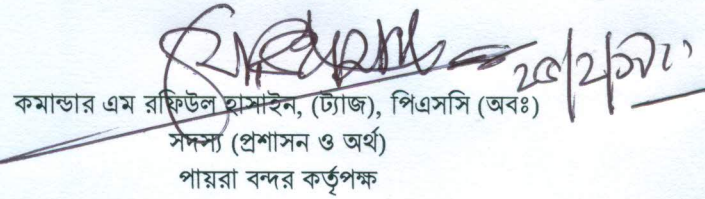 কমান্ডার এম রফিউল হাসাইন, (ট্যাজ), পিএসসি (অবঃ)
সদস্য (প্রশাসন ও অর্থ)
পায়রা বন্দর কর্তৃপক্ষ